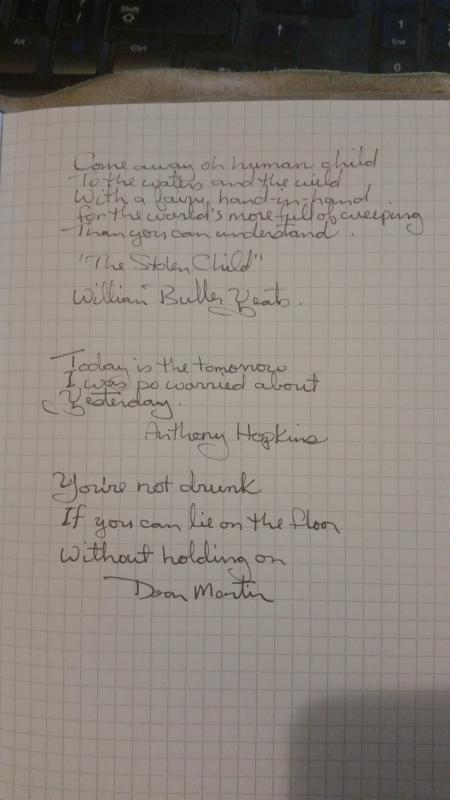 Alt
Shift
Ctrl
1
End
0
Come away oh human child
To the waters and the wild
With a faery, hand-in-hand
for the world's more full of weeping
Than you can understand.
"The Stolen Child"
William Butler Yeats.
Today is the tomorrow
I was so worried about
Yesterday.
Anthony Hopkins
You're not drunk
If you can lie on the floor
Without holding on
Dean Martin